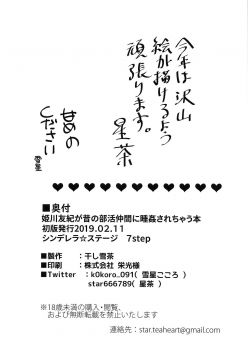 今年は沢山
絵が描けるよう
頑張ります。
星茶
甘めの
ください
雪星
■奥付
姫川友紀が昔の部活仲間に睡姦されちゃう本
初版発行2019.02.11
シンデレラ☆ステージ 7step
■製作 : 干し雪茶
■印刷 : 株式会社 栄光様
■Twitter : k0koro_091( 雪星こころ )
star666789( 星茶 )
※18歳未満の購入・閲覧、
および無断転載を禁止いたします
連絡先:star.teaheart@gmail.com